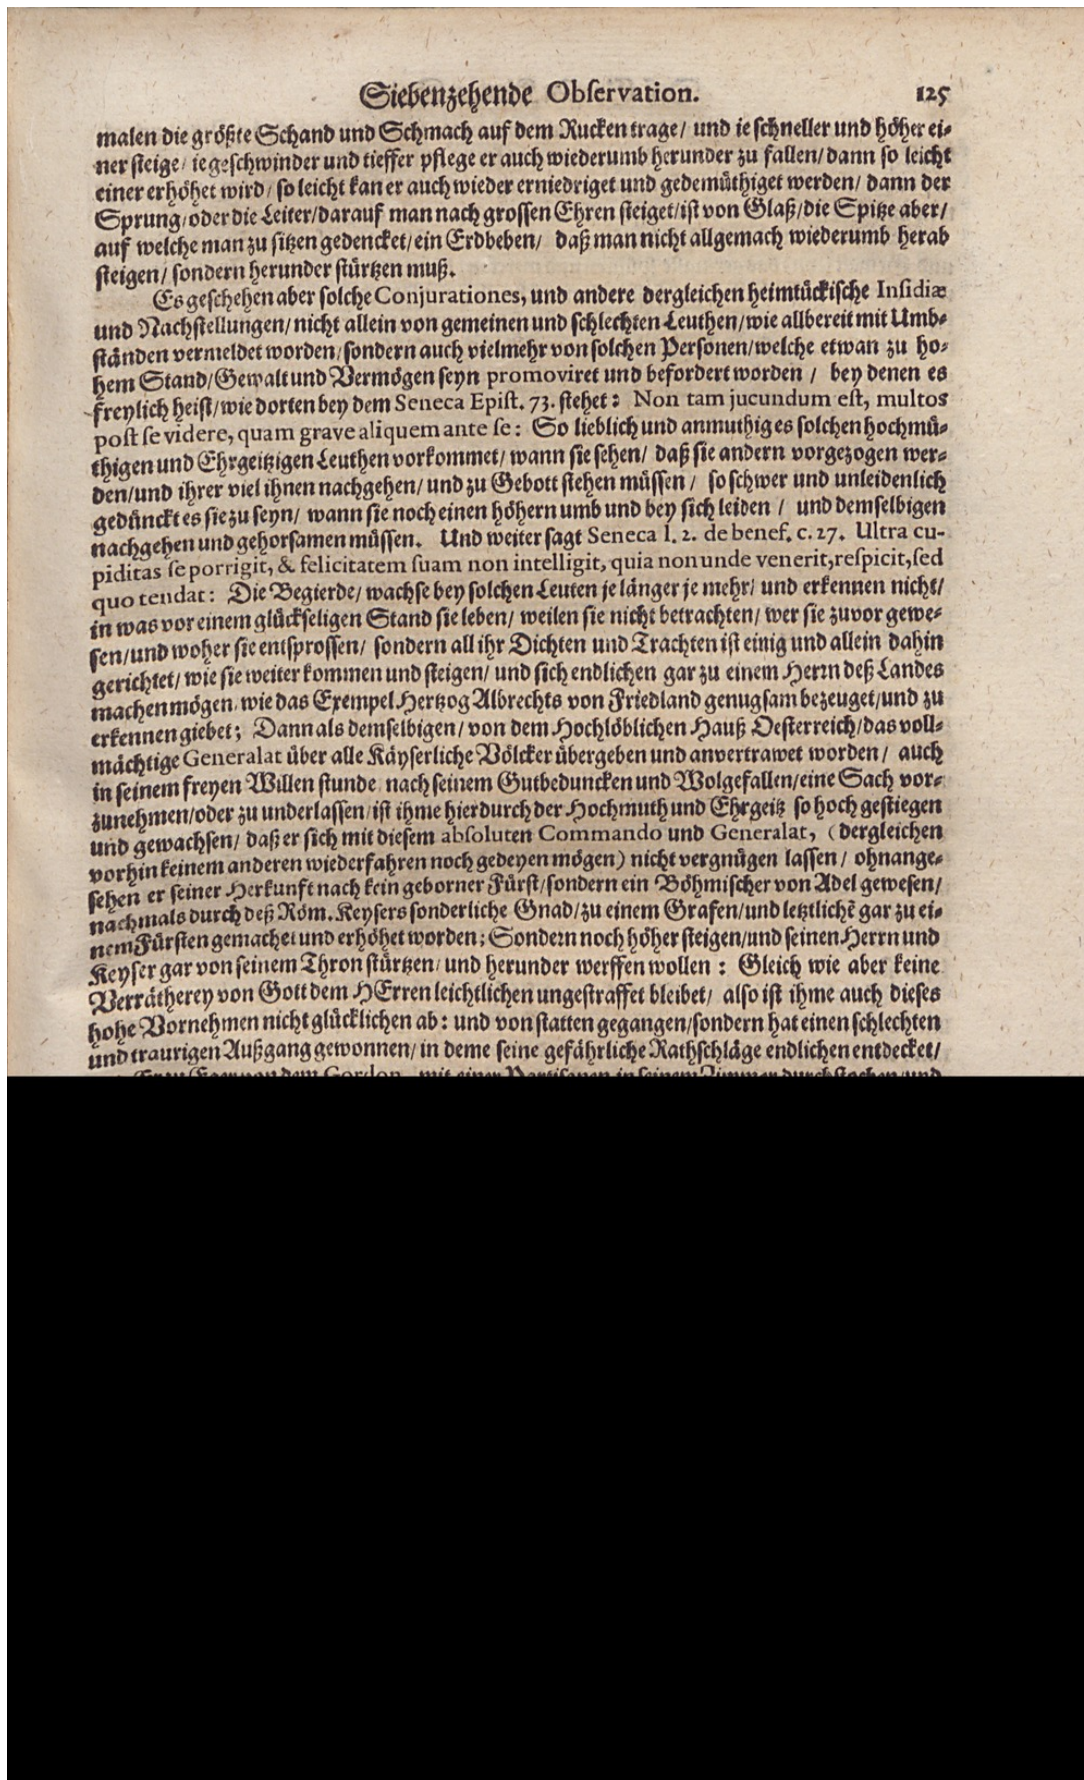 Siebenzehende Observation. 125
malen die größte Schand und Schmach auf dem Rucken trage/ und ie schneller und höher ei-
ner steige/ ie geschwinder und tieffer pflege er auch wiederumb herunder zu fallen/ dann so leicht
einer erhöhet wird/ so leicht kan er auch wieder erniedriget und gedemüthiget werden/ dann der
Sprung/ oder die Leiter/ darauf man nach grossen Ehren steiget/ ist von Glaß/ die Spitze aber/
auf welche man zu sitzen gedencket/ ein Erdbeben/ daß man nicht allgemach wiederumb herab
steigen/ sondern herunder stürtzen muß.
Es geschehen aber solche Conjurationes, und andere dergleichen heimtückische Insidiæ
und Nachstellungen/ nicht allein von gemeinen und schlechten Leuthen/ wie allbereit mit Umb-
ständen vermeldet worden/ sondern auch vielmehr von solchen Personen/ welche etwan zu ho-
hem Stand/ Gewalt und Vermögen seyn promoviret und befordert worden / bey denen es
freylich heist/ wie dorten bey dem Seneca Epist. 73. stehet: Non tam jucundum est, multos
post se videre, quam grave aliquem ante se: So lieblich und anmuthig es solchen hochmü-
thigen und Ehrgeitzigen Leuthen vorkommet/ wann sie sehen/ daß sie andern vorgezogen wer-
den/ und ihrer viel ihnen nachgehen/ und zu Gebott stehen müssen / so schwer und unleidenlich
gedünckt es sie zu seyn/ wann sie noch einen höhern umb und bey sich leiden / und demselbigen
nachgehen und gehorsamen müssen. Und weiter sagt Seneca l. 2. de benef. c. 27. Ultra cu-
piditas se porrigit, & felicitatem suam non intelligit, quia non unde venerit, respicit, sed
quo tendat: Die Begierde/ wachse bey solchen Leuten je länger je mehr/ und erkennen nicht/
in was vor einem glückseligen Stand sie leben/ weilen sie nicht betrachten/ wer sie zuvor gewe-
sen/ und woher sie entsprossen/ sondern all ihr Dichten und Trachten ist einig und allein dahin
gerichtet/ wie sie weiter kommen und steigen/ und sich endlichen gar zu einem Herrn deß Landes
machen mögen/ wie das Exempel Hertzog Albrechts von Friedland genugsam bezeuget/ und zu
erkennen giebet; Dann als demselbigen/ von dem Hochlöblichen Hauß Oesterreich/ das voll-
mächtige Generalat über alle Käyserliche Völcker übergeben und anvertrawet worden/ auch
in seinem freyen Willen stunde/ nach seinem Gutbeduncken und Wolgefallen/ eine Sach vor-
zunehmen/ oder zu underlassen/ ist ihme hierdurch der Hochmuth und Ehrgeitz so hoch gestiegen
und gewachsen/ daß er sich mit diesem absoluten Commando und Generalat, (dergleichen
vorhin keinem anderen wiederfahren noch gedeyen mögen) nicht vergnügen lassen/ ohnange-
sehen er seiner Herkunft nach kein geborner Fürst/ sondern ein Böhmischer von Adel gewesen/
nachmals durch deß Röm. Keysers sonderliche Gnad/ zu einem Grafen/ und letztlichẽ gar zu ei-
nem Fürsten gemachet und erhöhet worden; Sondern noch höher steigen/ und seinen Herrn und
Keyser gar von seinem Thron stürtzen/ und herunder werffen wollen: Gleich wie aber keine
Verrätherey von Gott dem HErren leichtlichen ungestraffet bleibet/ also ist ihme auch dieses
hohe Vornehmen nicht glücklichen ab: und von statten gegangen/ sondern hat einen schlechten
und traurigen Außgang gewonnen/ in deme seine gefährliche Rathschläge endlichen entdecket/
Eger von dem Gordon mit einer Partisanen in seinem Zimmer durchstochen/ und